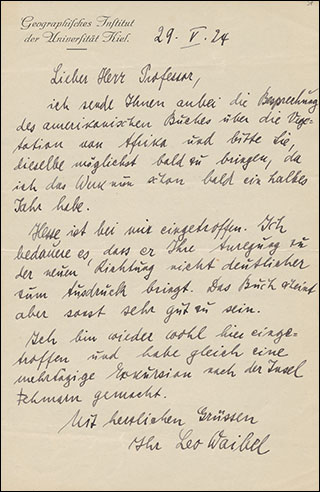 Geographisches Institut
der Universität Kiel.
29. V. 24
Lieber Herr Professor,
ich sende Ihnen anbei die Besprechung
des amerikanischen Buches über die Vege-
tation von Afrika und bitte Sie,
dieselbe möglichst bald zu bringen, da
ich das Werk nun schon bald ein halbes
Jahr habe.
Hesse ist bei mir eingetroffen. Ich
bedauere es, dass er Ihre Anregung zu
der neuen Richtung nicht deutlicher
zum Ausdruck bringt. Das Buch scheint
aber sonst sehr gut zu sein.
Ich bin wieder wohl hier einge-
troffen und habe gleich eine
mehrtägige Exkursion nach der Insel
Fehmarn gemacht.
Mit herzlichen Grüssen
Ihr Leo Waibel